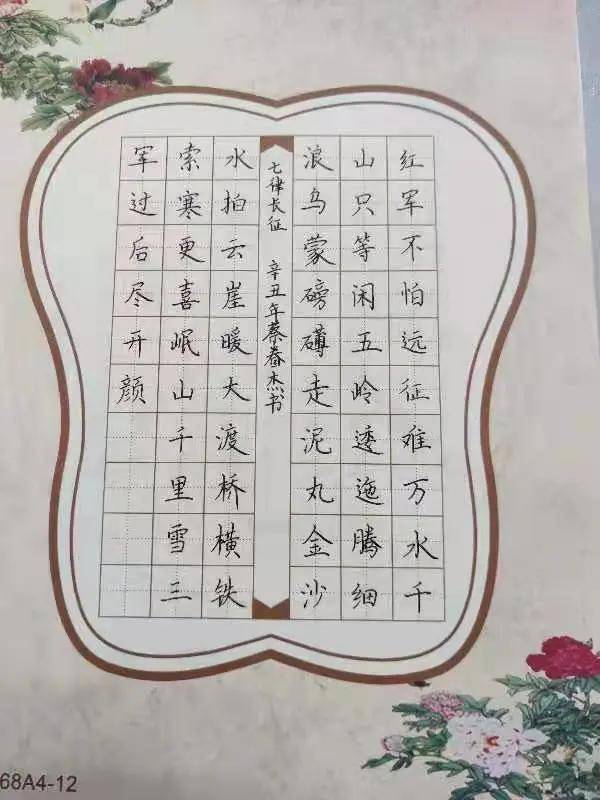 红军不怕远征难万水千
山只等闲五岭逶迤腾细
浪乌蒙磅礴走泥丸金沙
七律长征 辛丑年蔡春杰书
水拍云崖暖大渡桥横铁
索寒更喜岷山千里雪三
军过后尽开颜
68A4-12